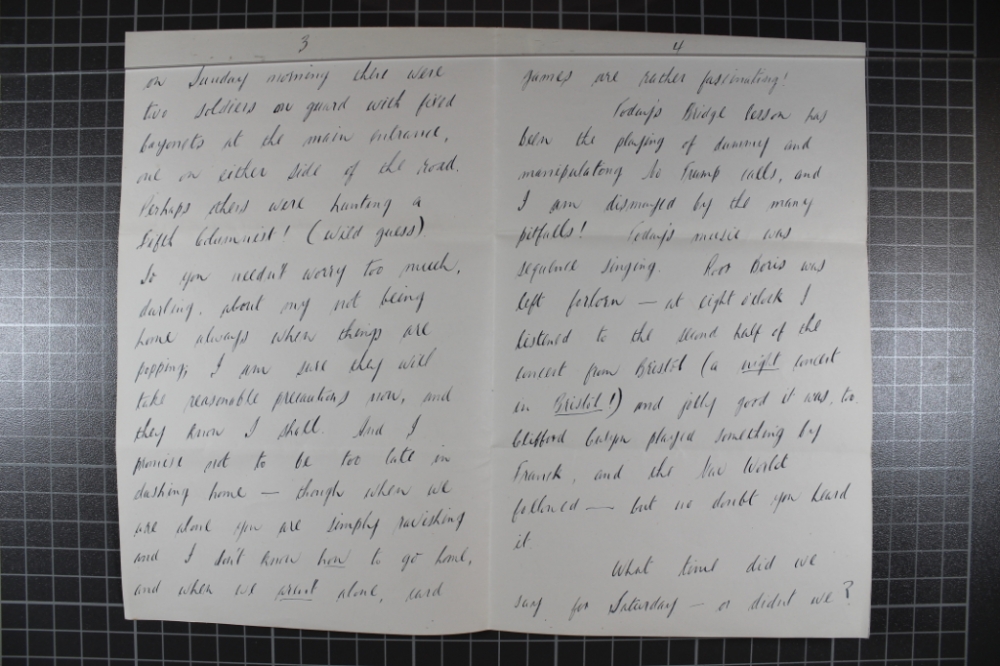 3
on Sunday morning there were
two soldiers on guard with fixed
bayonets at the main entrance,
one on either side of the road.
Perhaps others were hunting a
Fifth Columnist! (wild guess)
So you needn't worry too much,
darling, about my not being
home always when things are
popping; I am sure they will
take reasonable precautions now, and
they know I shall. And I
promise not to be too late in
dashing home — though when we
are alone you are simply ravishing
and I don't know how to go home,
and when we aren't alone, card
4
games are rather fascinating!
Today's Bridge lesson has
been the playing of dummy and
manipulating No Trump calls, and
I am dismayed by the many
pitfalls! Today's music was
sequence singing. Poor Boris was
left forlorn — at eight o'clock I
listened to the second half of the
concert from Bristol (a night concert
in Bristol!) and jolly good it was, too.
Clifford Curzon played something by
Franck, and the New World
followed — but no doubt you heard
it.
What time did we
say for Saturday — or didn't we?